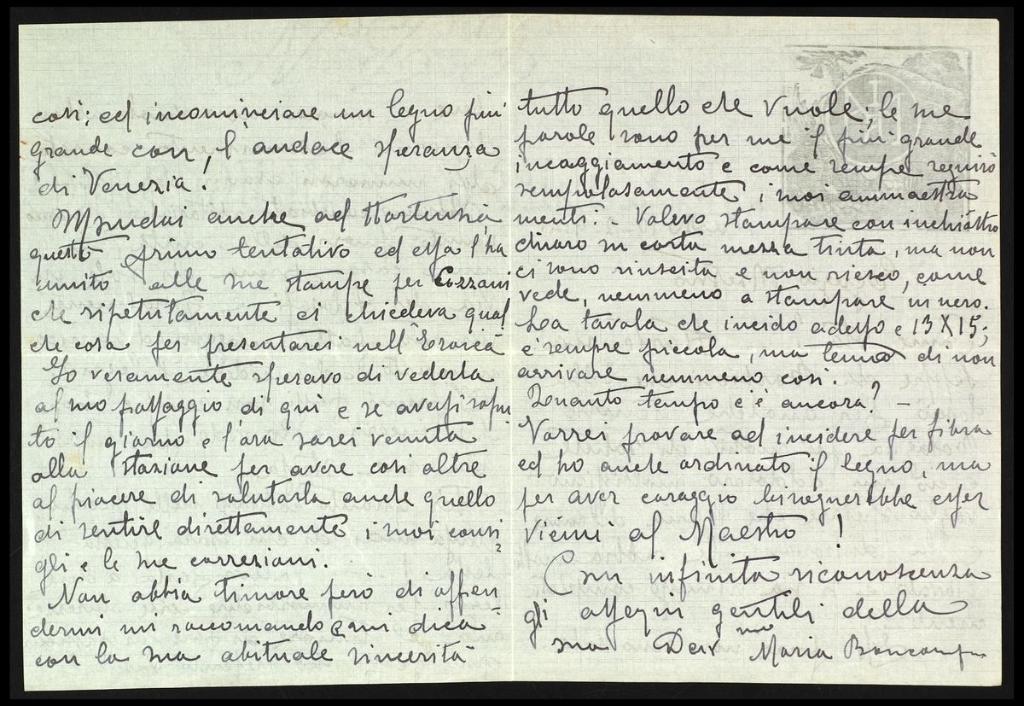 così; ed incominciare un legno più
grande con, l'andace speranza
di Venezia!
Mandai anche ad Hortensia,
questo primo tentativo ed essa l'ha
unito alle sue stampe per Cozzani
che ripetutamente ci chiedeva qual
che cosa per presentarci nell'Eroica
Io veramente speravo di vederla
al suo passaggio di qui e se avessi sapu
to il giorno e l'ora sarei venuta
alla stazione per avere così oltre
al piacere di salutarla anche quello
di sentire direttamente i suoi consi
gli e le sue correzioni.
Non abbia timore però di offen
dermi mi raccomando e mi dica
con la sua abituale sincerità
tutto quello che vuole; le sue
parole sono per me il più grande
incoggiamento e come sempre seguirò
scrupolosamente i suoi ammaestra
menti. - Volevo stampare con inchiostro
chiaro su carta mezza tinta, ma non
ci sono riuscita e non riesco, come
vede, nemmeno a stampare in nero.
La tavola che incido adesso è 13X15;
è sempre piccola, ma temo di non
arrivare nemmeno così.
Quanto tempo c'è ancora? -
Vorrei provare ad incidere per fibra
ed ho anche ordinato il legno, ma
per aver coraggio bisognerebbe esser
vicini al Maestro!
Con infinita riconoscenza
gli ossequi gentili della
sua Dev ma Maria Boncompa